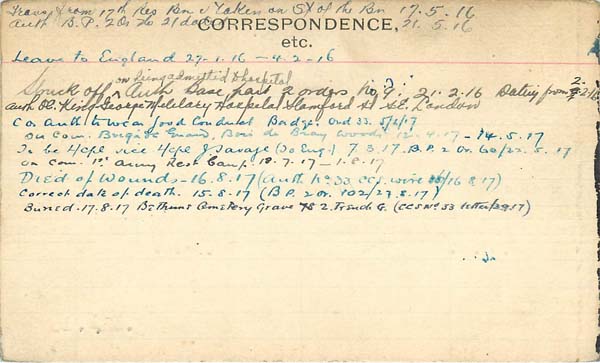 Trans from 17th Res Bn & Taken on S/ of the Bn 17.5.16
auth B.P. 2 Ors No 21 21.5.16
CORRESPONDENCE,
etc.
Leave to England 27.1.16 — 4.2.16
on being admitted to hospital
Struck off Auth Base part 2 orders No 9. 21.2.16 Dating from
auth O.C. King George Military Hospital Stamford St S.E. London
C.O. Auth to wear Good Conduct Badge, Ord 33.
on Com. Brigade Guard, Bois de Bray Woods 12.4.17 — 14.5.17
To be 4/Cpl vice 4/Cpl J Savage (To Eng.) 7.3.17. B.P. 2 Or. 60/22.5.17
on com. 1st Army Rest Camp. 18.7.17 — 1.8.17
Died of Wounds — 16.8.17 (Auth No 33 CCS wire /16 8/17)
Correct date of death. 15.8.17 (B.P. 2 Or. 102/27.8.17)
Buried. 17.8.17 Bethune Cemetery Grave 78 2. Trench G. (CCS No 33 letter